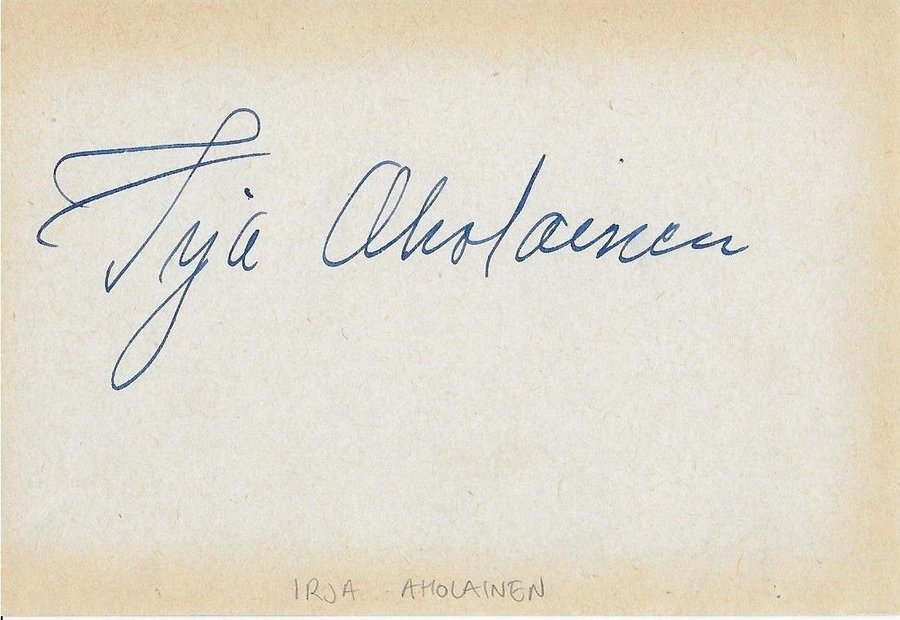 Irja Aholainen
IRJA AHOLAINEN